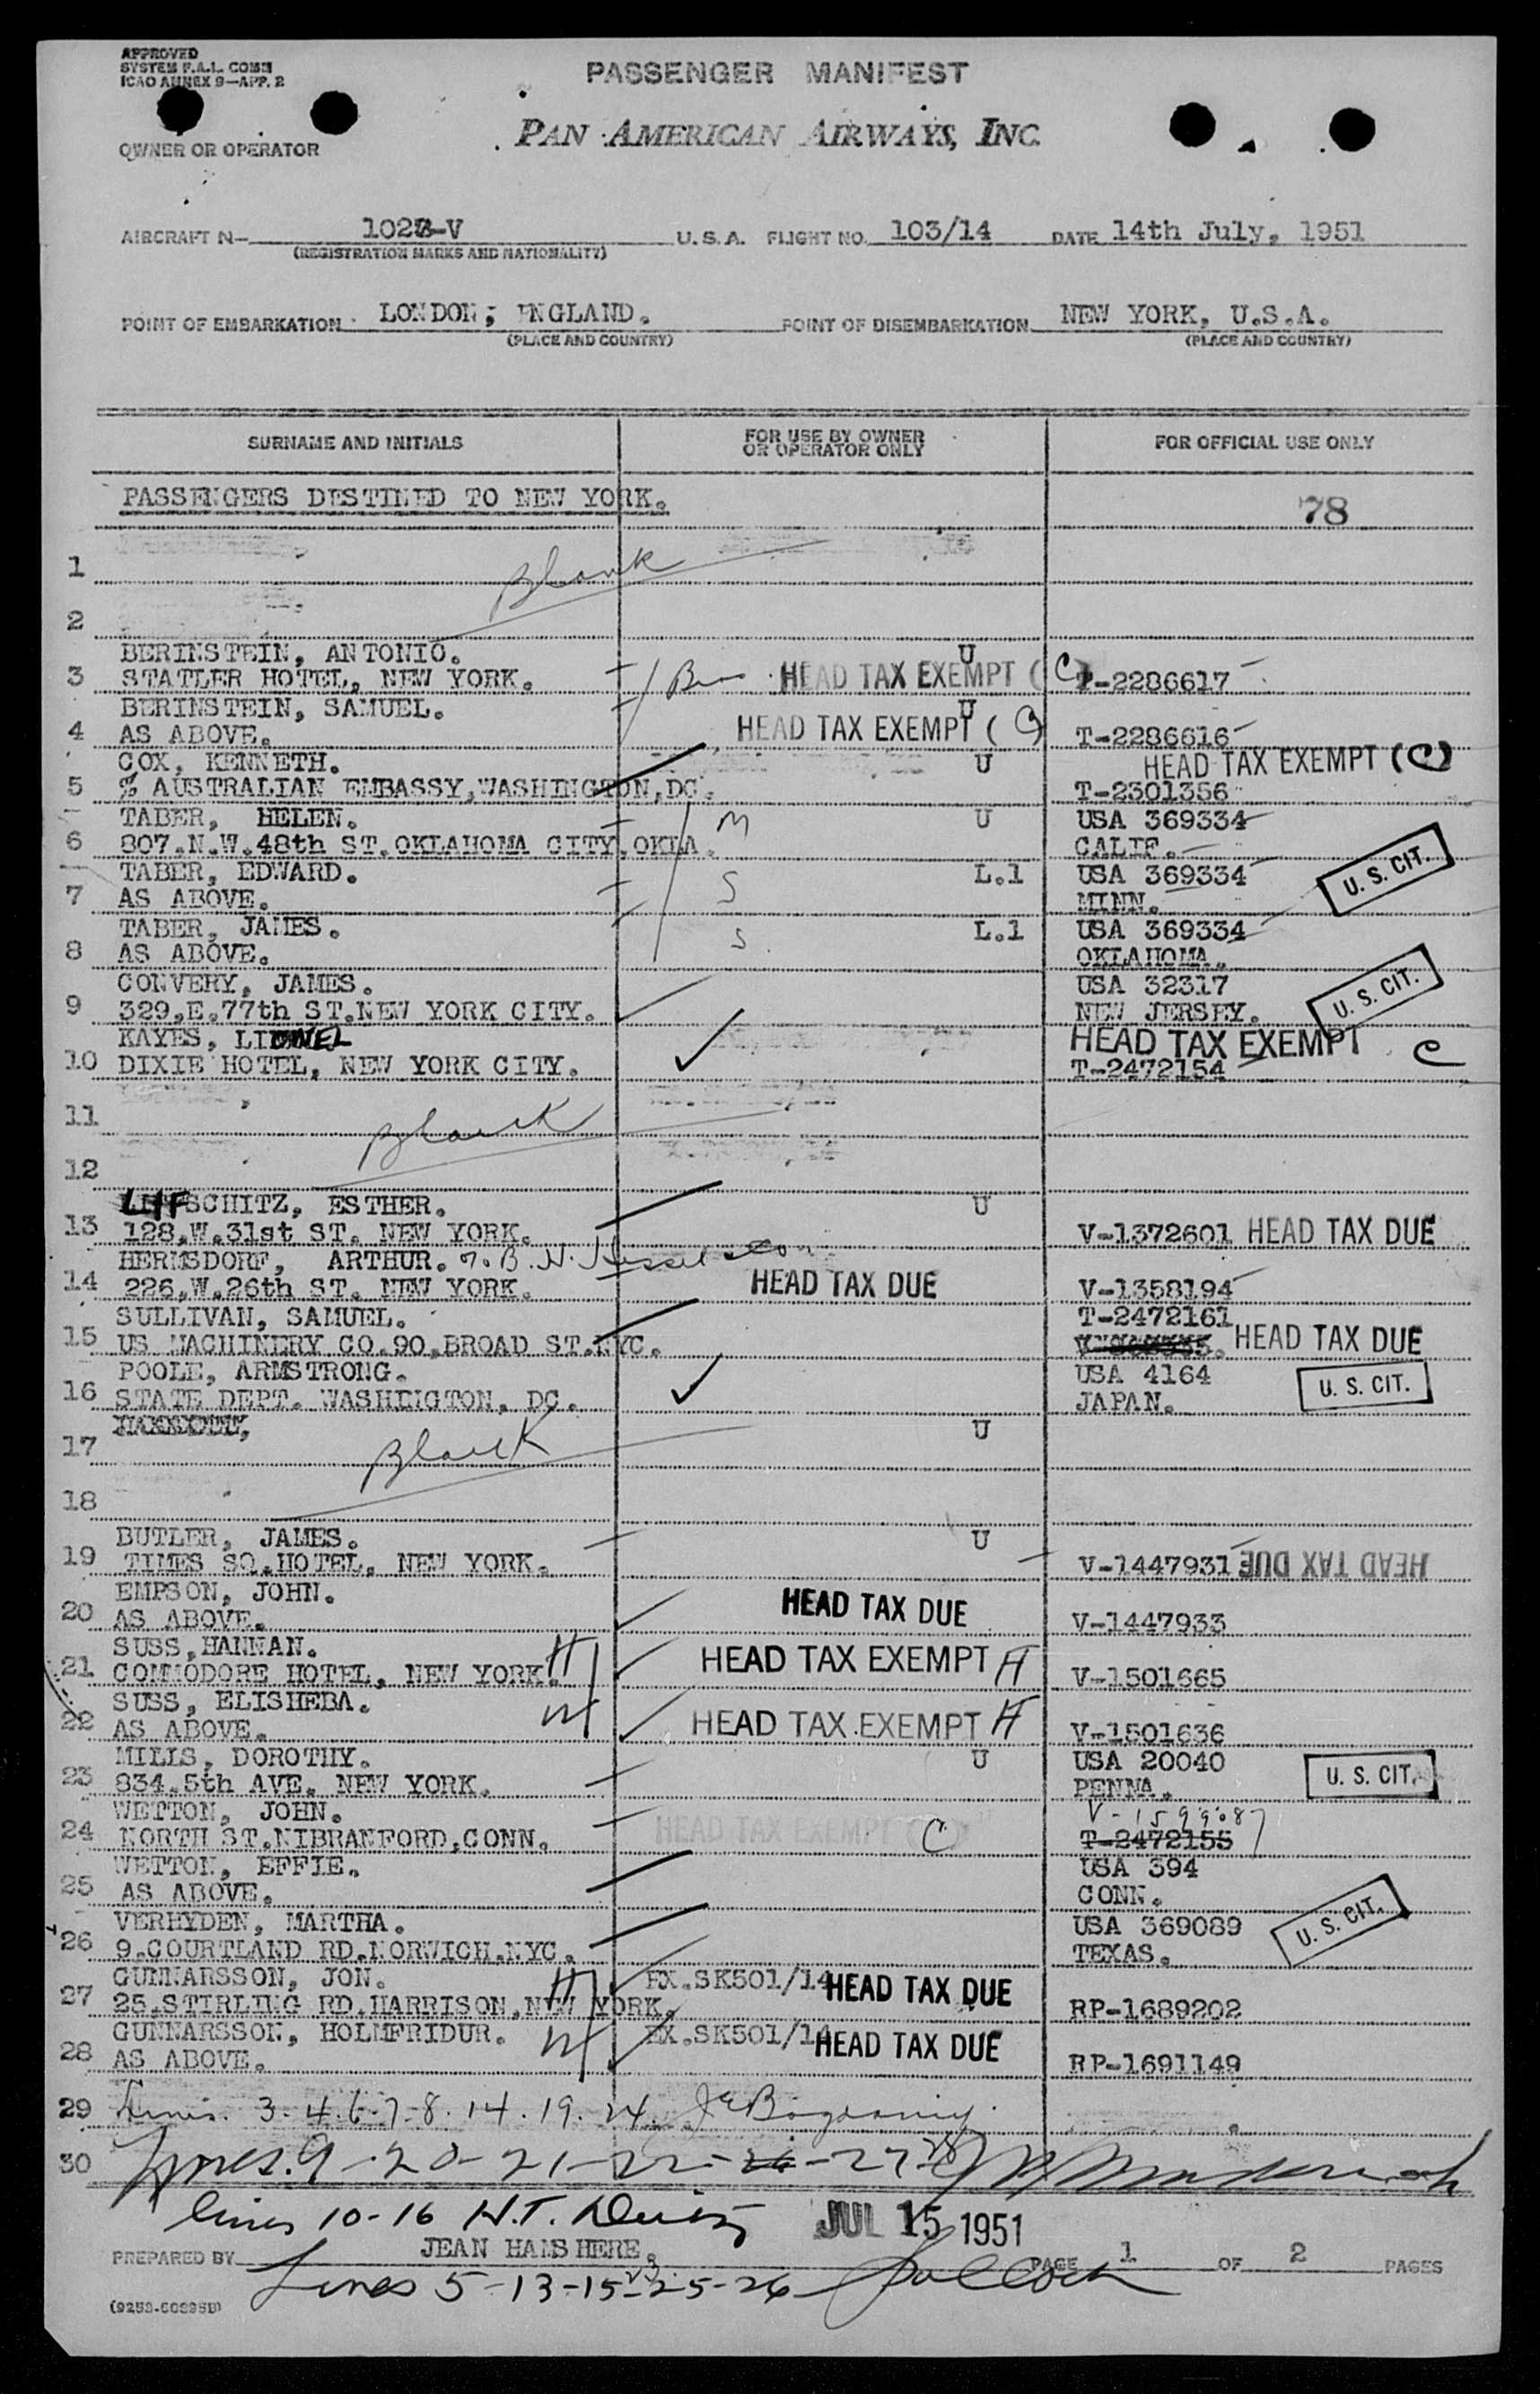 APPROVED
SYSTEM F.A.L. COMM
ICAO ANNEX 9—APP. 2
PASSENGER MANIFEST
PAN AMERICAN AIRWAYS, INC.
OWNER OR OPERATOR
AIRCRAFT N— -V U.S.A. FLIGHT NO. 103/14 DATE 14th July, 1951
(REGISTRATION MARKS AND NATIONALITY)
POINT OF EMBARKATION LONDON; ENGLAND. POINT OF DISEMBARKATION NEW YORK, U.S.A.
(PLACE AND COUNTRY) (PLACE AND COUNTRY)
SURNAME AND INITIALS FOR USE BY OWNER OR OPERATOR ONLY FOR OFFICIAL USE ONLY
PASSENGERS DESTINED TO NEW YORK. 78
1 Blank
2
BERINSTEIN, ANTONIO. U
3 STATLER HOTEL, NEW YORK. HEAD TAX EXEMPT (C) T-2286617
BERINSTEIN, SAMUEL. U
4 AS ABOVE. HEAD TAX EXEMPT (C) T-2286616
COX, KENNETH. U HEAD TAX EXEMPT (C)
5 % AUSTRALIAN EMBASSY, WASHINGTON, DC. T-2301356
TABER, HELEN. M U USA 369334
6 807.N.W.48th ST. OKLAHOMA CITY, OKLA. CALIF.
TABER, EDWARD. S L.1 USA 369334 U. S. CIT.
7 AS ABOVE. MINN.
TABER, JAMES. S L.1 USA 369334
8 AS ABOVE. OKLAHOMA.
CONVERY, JAMES. USA 32317 U. S. CIT.
9 329.E.77th ST. NEW YORK CITY. NEW JERSEY.
KAYES, LIONEL HEAD TAX EXEMPT C
10 DIXIE HOTEL, NEW YORK CITY. T-2472154
11 Blank
12
LIFSCHITZ, ESTHER. U
13 128.W.31st ST. NEW YORK. V-1372601 HEAD TAX DUE
HERMSDORF, ARTHUR.
14 226.W.26th ST. NEW YORK. HEAD TAX DUE V-1358194
SULLIVAN, SAMUEL. T-2472161
15 US MACHINERY CO. 90.BROAD ST. NYC. HEAD TAX DUE
POOLE, ARMSTRONG. USA 4164 U. S. CIT.
16 STATE DEPT. WASHINGTON, DC. JAPAN.
U
17 Blank
18
BUTLER, JAMES. U
19 TIMES SQ. HOTEL, NEW YORK. V-1447931 HEAD TAX DUE
EMPSON, JOHN.
20 AS ABOVE. HEAD TAX DUE V-1447933
SUSS, HANNAN. H
21 COMMODORE HOTEL, NEW YORK. HEAD TAX EXEMPT H V-1501665
SUSS, ELISHEBA. W
22 AS ABOVE. HEAD TAX EXEMPT H V-1501636
MILLS, DOROTHY. U USA 20040 U. S. CIT.
23 834.5th AVE. NEW YORK. PENNA.
WETTON, JOHN. V-159987
24 NORTH ST. NIBRANFORD, CONN. HEAD TAX EXEMPT (C) T-2472155
WETTON, EFFIE. USA 394
25 AS ABOVE. CONN.
VERHYDEN, MARTHA. USA 369089 U. S. CIT.
26 9.COURTLAND RD. NORWICH. NYC. TEXAS.
GUNNARSSON, JON. H EX.SK501/14 HEAD TAX DUE
27 25.STIRLING RD. HARRISON, NEW YORK. RP-1689202
GUNNARSSON, HOLMFRIDUR. W EX.SK501/14 HEAD TAX DUE
28 AS ABOVE. RP-1691149
29 Lines. 3.4.6.7.8.14.19.24.
30 Lines. 9-20-21-22-26-27-28
Lines 10-16 H.T. JUL 15 1951
PREPARED BY JEAN HAMSHERE. PAGE 1 OF 2 PAGES
Lines 5-13-15-23-25-26